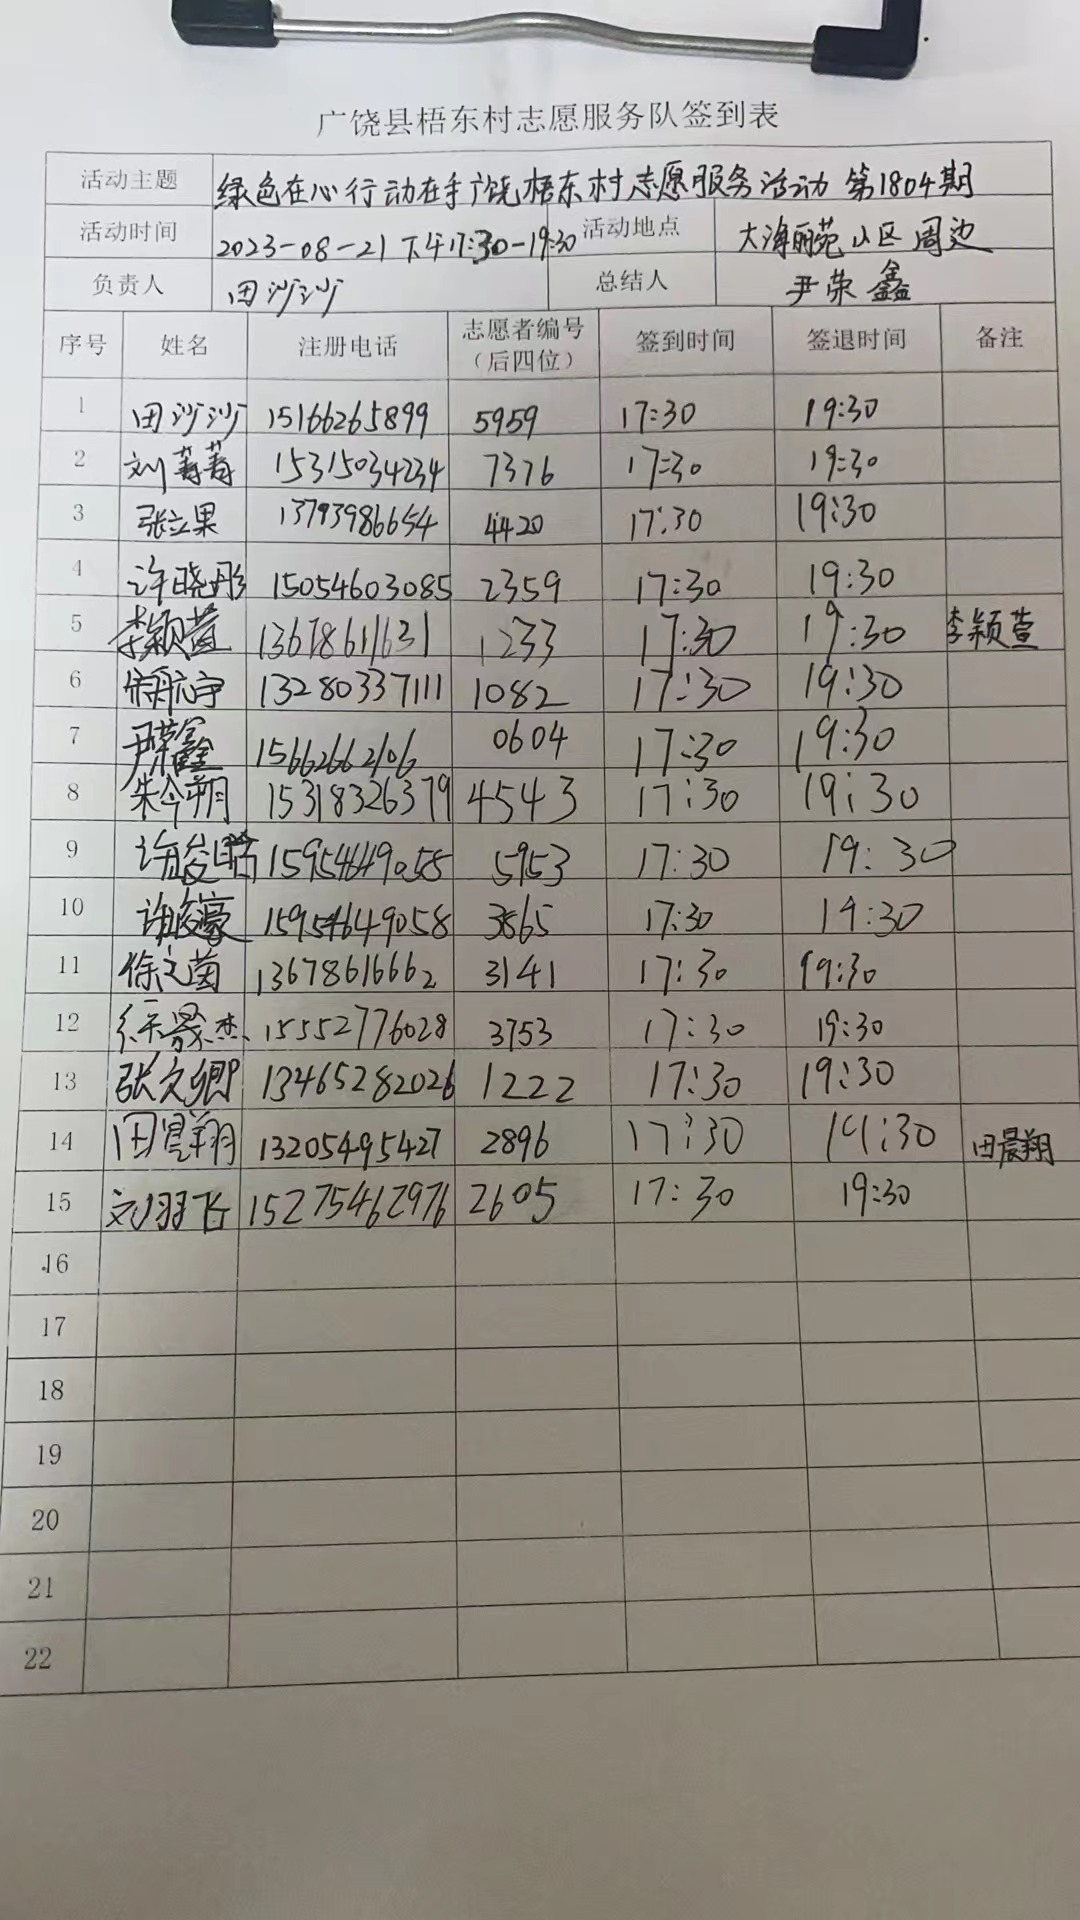 广饶县梧东村志愿服务队签到表
活动主题 绿色在心行动在手广饶梧东村志愿服务活动 第1804期
活动时间 2023-08-21 下午17:30-19:30 活动地点 大海丽苑小区周边
负责人 田沙沙 总结人 尹荣鑫
序号 姓名 注册电话 志愿者编号（后四位） 签到时间 签退时间 备注
1 田沙沙 15166265899 5959 17:30 19:30
2 刘菁菁 15315034234 7376 17:30 19:30
3 张立果 13793986654 4420 17:30 19:30
4 许晓彤 15054603085 2359 17:30 19:30
5 李颖萱 13678611631 1233 17:30 19:30 李颖萱
6 航宇 13280337111 1082 17:30 19:30
7 尹荣鑫 15662662106 0604 17:30 19:30
8 朱今朝 15318326379 4543 17:30 19:30
9 许俊皓 15954649058 5953 17:30 19:30
10 许俊豪 15954649058 3865 17:30 19:30
11 徐文茵 13678616662 3141 17:30 19:30
12 杰 15552776028 3753 17:30 19:30
13 张文卿 13465282026 1222 17:30 19:30
14 田晨翔 13205495427 2896 17:30 19:30 田晨翔
15 刘羽飞 15275462976 2605 17:30 19:30
16
17
18
19
20
21
22